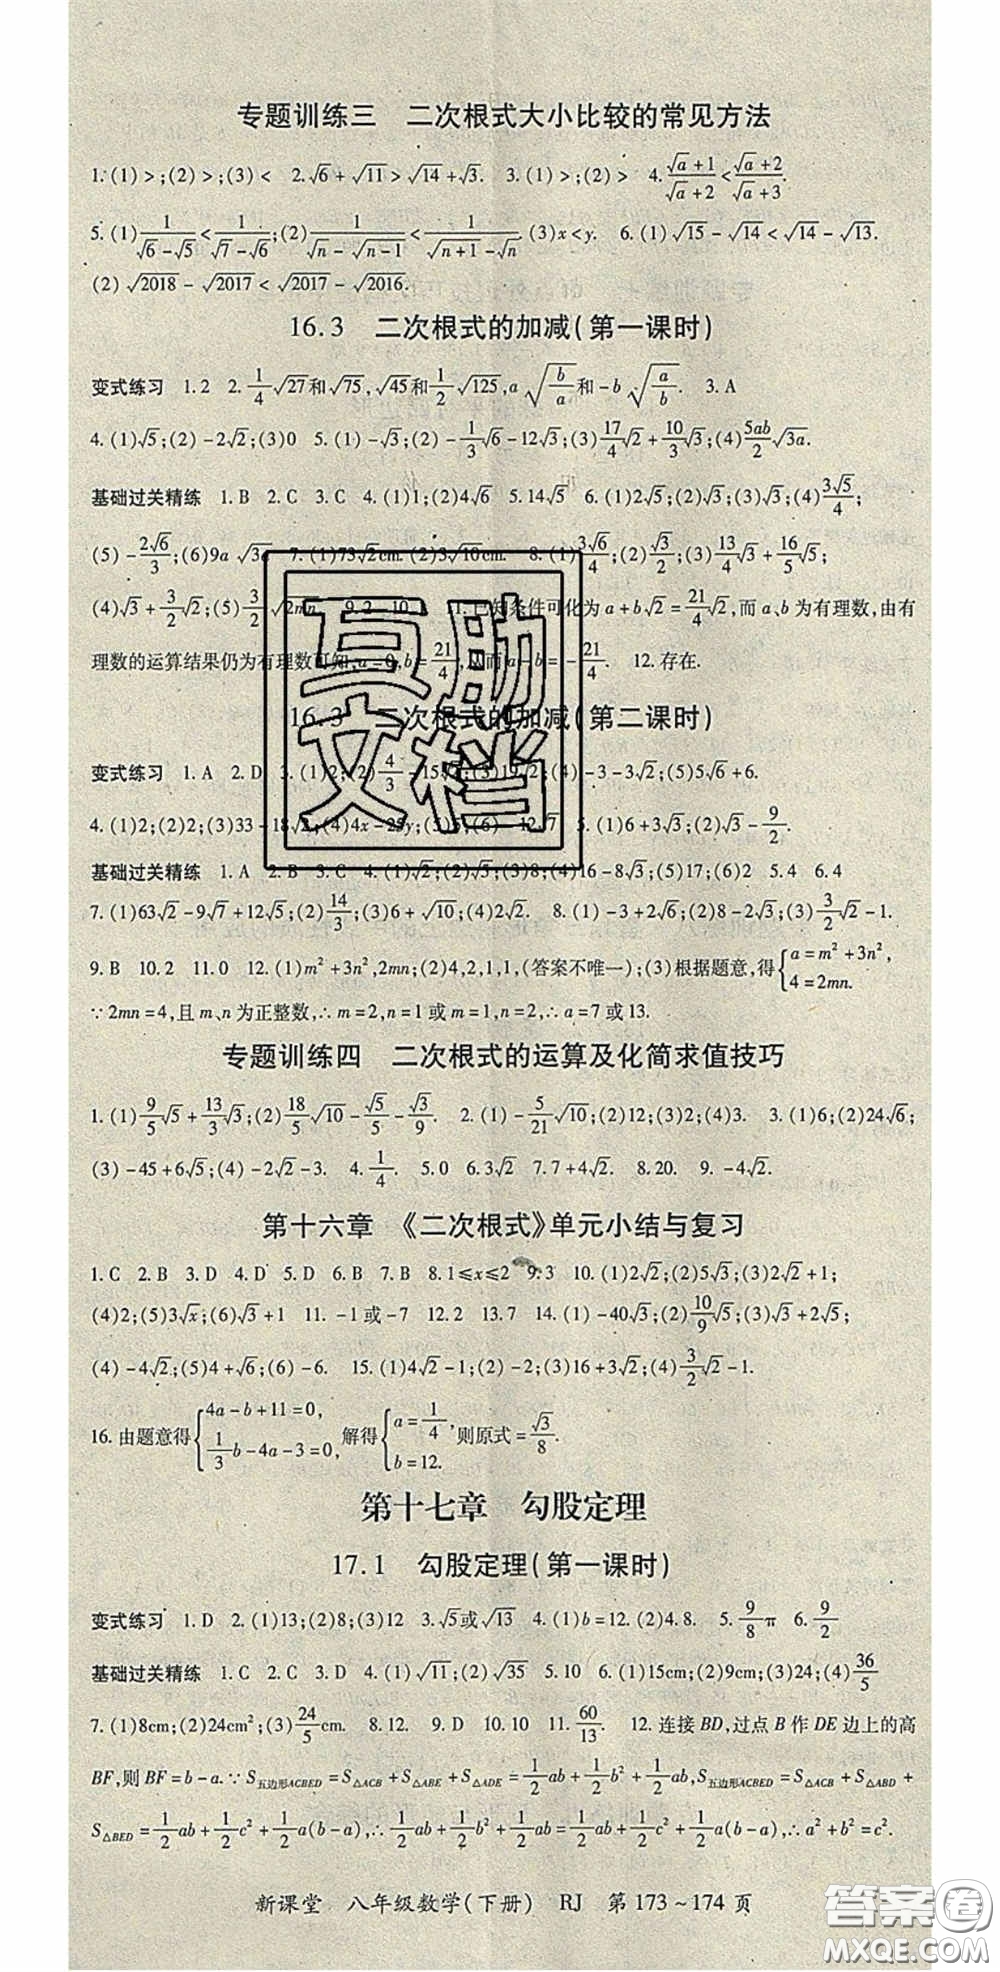 专题训练三　二次根式大小比较的常见方法
1. (1) >; (2) >; (3) <　2. √6 + √11 > √14 + √3.　3. (1) >; (2) >　4. (√a+1)/(√a+2) < (√a+2)/(√a+3).
5. (1) 1/(√6-√5) < 1/(√7-√6); (2) 1/(√n-√(n-1)) < 1/(√(n+1)-√n). (3) x<y.　6. (1) √15-√14 < √14-√13.
(2) √2018-√2017 < √2017-√2016.
16.3　二次根式的加减(第一课时)
变式练习　1. 2　2. 1/4√27和√75, √45和1/2√125, a√(b/a)和-b√(a/b).　3. A
4. (1)√5; (2)-2√2; (3)0　5. (1)-√3; (2)-1/3√6-12√3; (3)17/4√2+10/3√3; (4)5ab/2√3a.
基础过关精练　1. B　2. C　3. C　4. (1)1; (2)4√6　5. 14√5　6. (1)2√5; (2)√3; (3)√3; (4)3√5/4;
(5)-2√6/3; (6)9a√3a　7. (1)73√2cm. (2)3√10cm.　8. (1)3√6/4; (2)√3/2; (3)13/4√3+16/5√5;
(4)√3+3/2√2; (5)3/2√2mn.　9. 2　10.　1. 已知条件可化为a+b√2=21/4√2,而a、b为有理数,由有
理数的运算结果仍为有理数可知,a=0,b=21/4,从而a-b=-21/4.　12. 存在.
16.3　二次根式的加减(第二课时)
变式练习　1. A　2. D　3. (1)2; (2)4/3-15√; (3)19√2; (4)-3-3√2; (5)5√6+6.
4. (1)2; (2)2; (3)33-18√2; (4)4x-25y; (5)5; (6)-12√7　5. (1)6+3√3; (2)√3-9/2.
基础过关精练　1. A　2. B　3. C　4. (1)√2; (2)√2; (3)8; (4)16-8√3; (5)17; (6)2　5. 4　6. 4
7. (1)63√2-9√7+12√5; (2)14/3; (3)6+√10; (4)2√2.　8. (1)-3+2√6; (2)8-2√3; (3)3/2√2-1.
9. B　10. 2　11. 0　12. (1)m²+3n²,2mn; (2)4,2,1,1,(答案不唯一); (3)根据题意,得{a=m²+3n², 4=2mn.
∵2mn=4,且m、n为正整数,∴m=2,n=1或m=1,n=2,∴a=7或13.
专题训练四　二次根式的运算及化简求值技巧
1. (1)9/5√5+13/3√3; (2)18/5√10-√5/5-√3/9.　2. (1)-5/21√10; (2)12; (3)2; (4)3.　3. (1)6; (2)24√6;
(3)-45+6√5; (4)-2√2-3.　4. 1/4.　5. 0　6. 3√2　7. 7+4√2.　8. 20.　9. -4√2.
第十六章　《二次根式》单元小结与复习
1. C　2. B　3. D　4. D　5. D　6. B　7. B　8. 1≤x≤2　9. 3　10. (1)2√2; (2)5√3; (3)2√2+1;
(4)2; (5)3√x; (6)√3+1　11. -1或-7　12. 2　13. 7　14. (1)-40√3; (2)10/9√5; (3)√3+2√5;
(4)-4√2; (5)4+√6; (6)-6.　15. (1)4√2-1; (2)-2; (3)16+3√2; (4)3/2√2-1.
16. 由题意得{4a-b+11=0, 1/3b-4a-3=0, 解得{a=1/4, b=12. 则原式=√3/8.
第十七章　勾股定理
17.1　勾股定理(第一课时)
变式练习　1. D　2. (1)13; (2)8; (3)12　3. √5或√13　4. (1)b=12. (2)4.8.　5. 9/8π　6. 9/2
基础过关精练　1. C　2. C　3. D　4. (1)√11; (2)√35　5. 10　6. (1)15cm; (2)9cm; (3)24; (4)36/5
7. (1)8cm; (2)24cm²; (3)24/5cm.　8. 12.　9. D　10. 10　11. 60/13.　12. 连接BD,过点B作DE边上的高
BF,则BF=b-a.∵S五边形ACBED=S△ACB+S△ABE+S△ADE=1/2ab+1/2b²+1/2ab,S五边形ACBED=S△ACB+S△ABD+
S△BED=1/2ab+1/2c²+1/2a(b-a),∴1/2ab+1/2b²+1/2ab=1/2ab+1/2c²+1/2a(b-a),∴a²+b²=c².
新课堂　八年级数学(下册)　RJ　第173~174页
互助
文档
答案圈
MXQE.COM